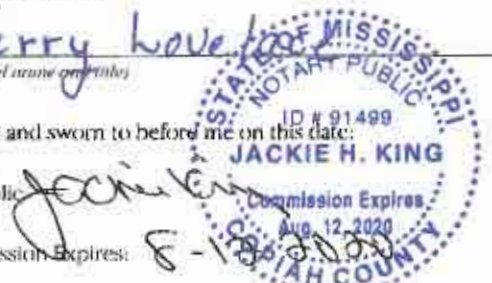 erry Lovelace
and sworn to before me on this date:
Jackie King
ssion Expires: 8-12-2020
STATE OF MISSISSIPPI
NOTARY PUBLIC
ID # 91499
JACKIE H. KING
Commission Expires
Aug. 12, 2020
IAH COUNTY